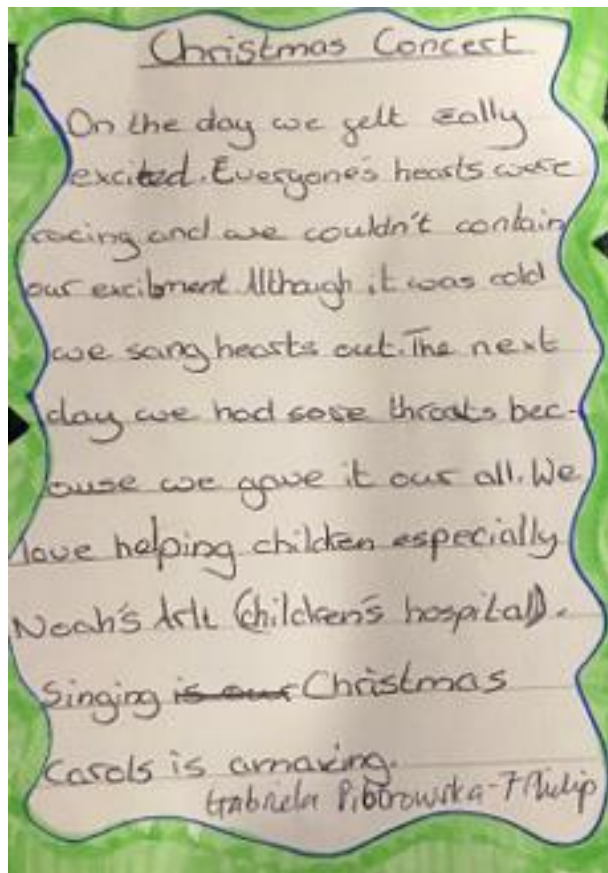 Christmas Concert
On the day we felt eally
excited. Everyone's hearts were
racing and we couldn't contain
our excitment Although it was cold
we sang hearts out. The next
day we had sore throats bec-
ause we gave it our all. We
love helping children especially
Noah's Ark (children's hospital).
Singing is our Christmas
Carols is amazing.
Gabriela